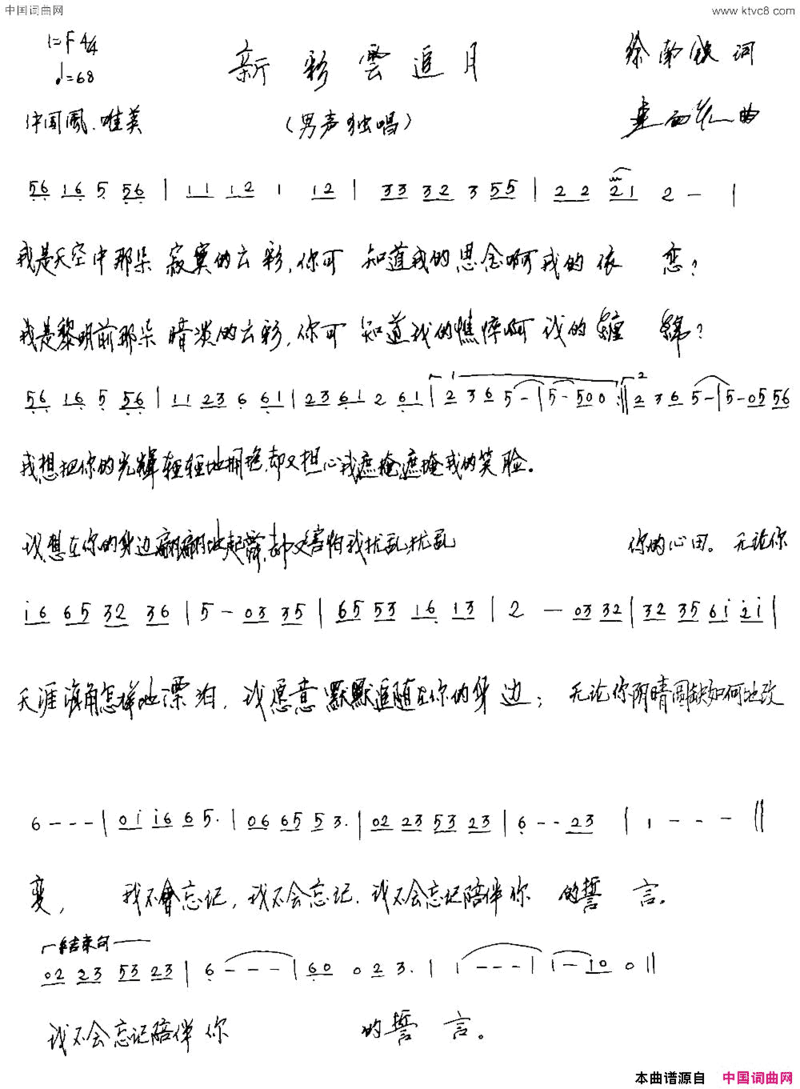 中国词曲网 www.ktvc8.com
1=F 4/4
♩=68
新彩雲追月
徐南铁 词
中国風、唯美
(男声独唱)
曲
56 16 5 56 | 11 12 1 12 | 33 32 3 55 | 22 21 2 — |
我是天空中那朵寂寞的云彩,你可知道我的思念啊我的依恋?
我是黎明前那朵暗淡的云彩,你可知道我的憔悴啊我的纏綿?
56 16 5 56 | 11 23 6 61 | 23 61 2 61 | 1 2 3 6 5 - | 5 - 500 :‖ 2 2 3 6 5 - | 5 - 05 56
我想把你的光輝轻轻地拥抱,却又担心我遮掩遮掩我的笑脸。
我想在你的身边翩翩地起舞,却又害怕我扰乱扰乱 你的心田。无论你
i6 65 32 36 | 5 - 03 35 | 65 53 16 13 | 2 — 03 32 | 32 35 6i 2i |
天涯海角怎样地漂泊,我愿意默默追随在你的身边;无论你阴晴圆缺如何地改
6 - - - | 0i i6 6 5. | 06 65 5 3. | 02 23 53 23 | 6 - - 23 | 1 - - - ‖
变, 我不會忘记,我不会忘记.我不会忘记陪伴你 的誓 言。
结束句
02 23 53 23 | 6 - - - | 60 0 2 3. | 1 - - - | 1 - 10 0 ‖
我不会忘记陪伴你 的誓 言。
本曲谱源自 中国词曲网